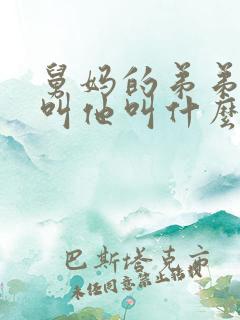 舅妈的弟弟
叫他叫什麽
巴斯塔克亦
未经同意禁止转载